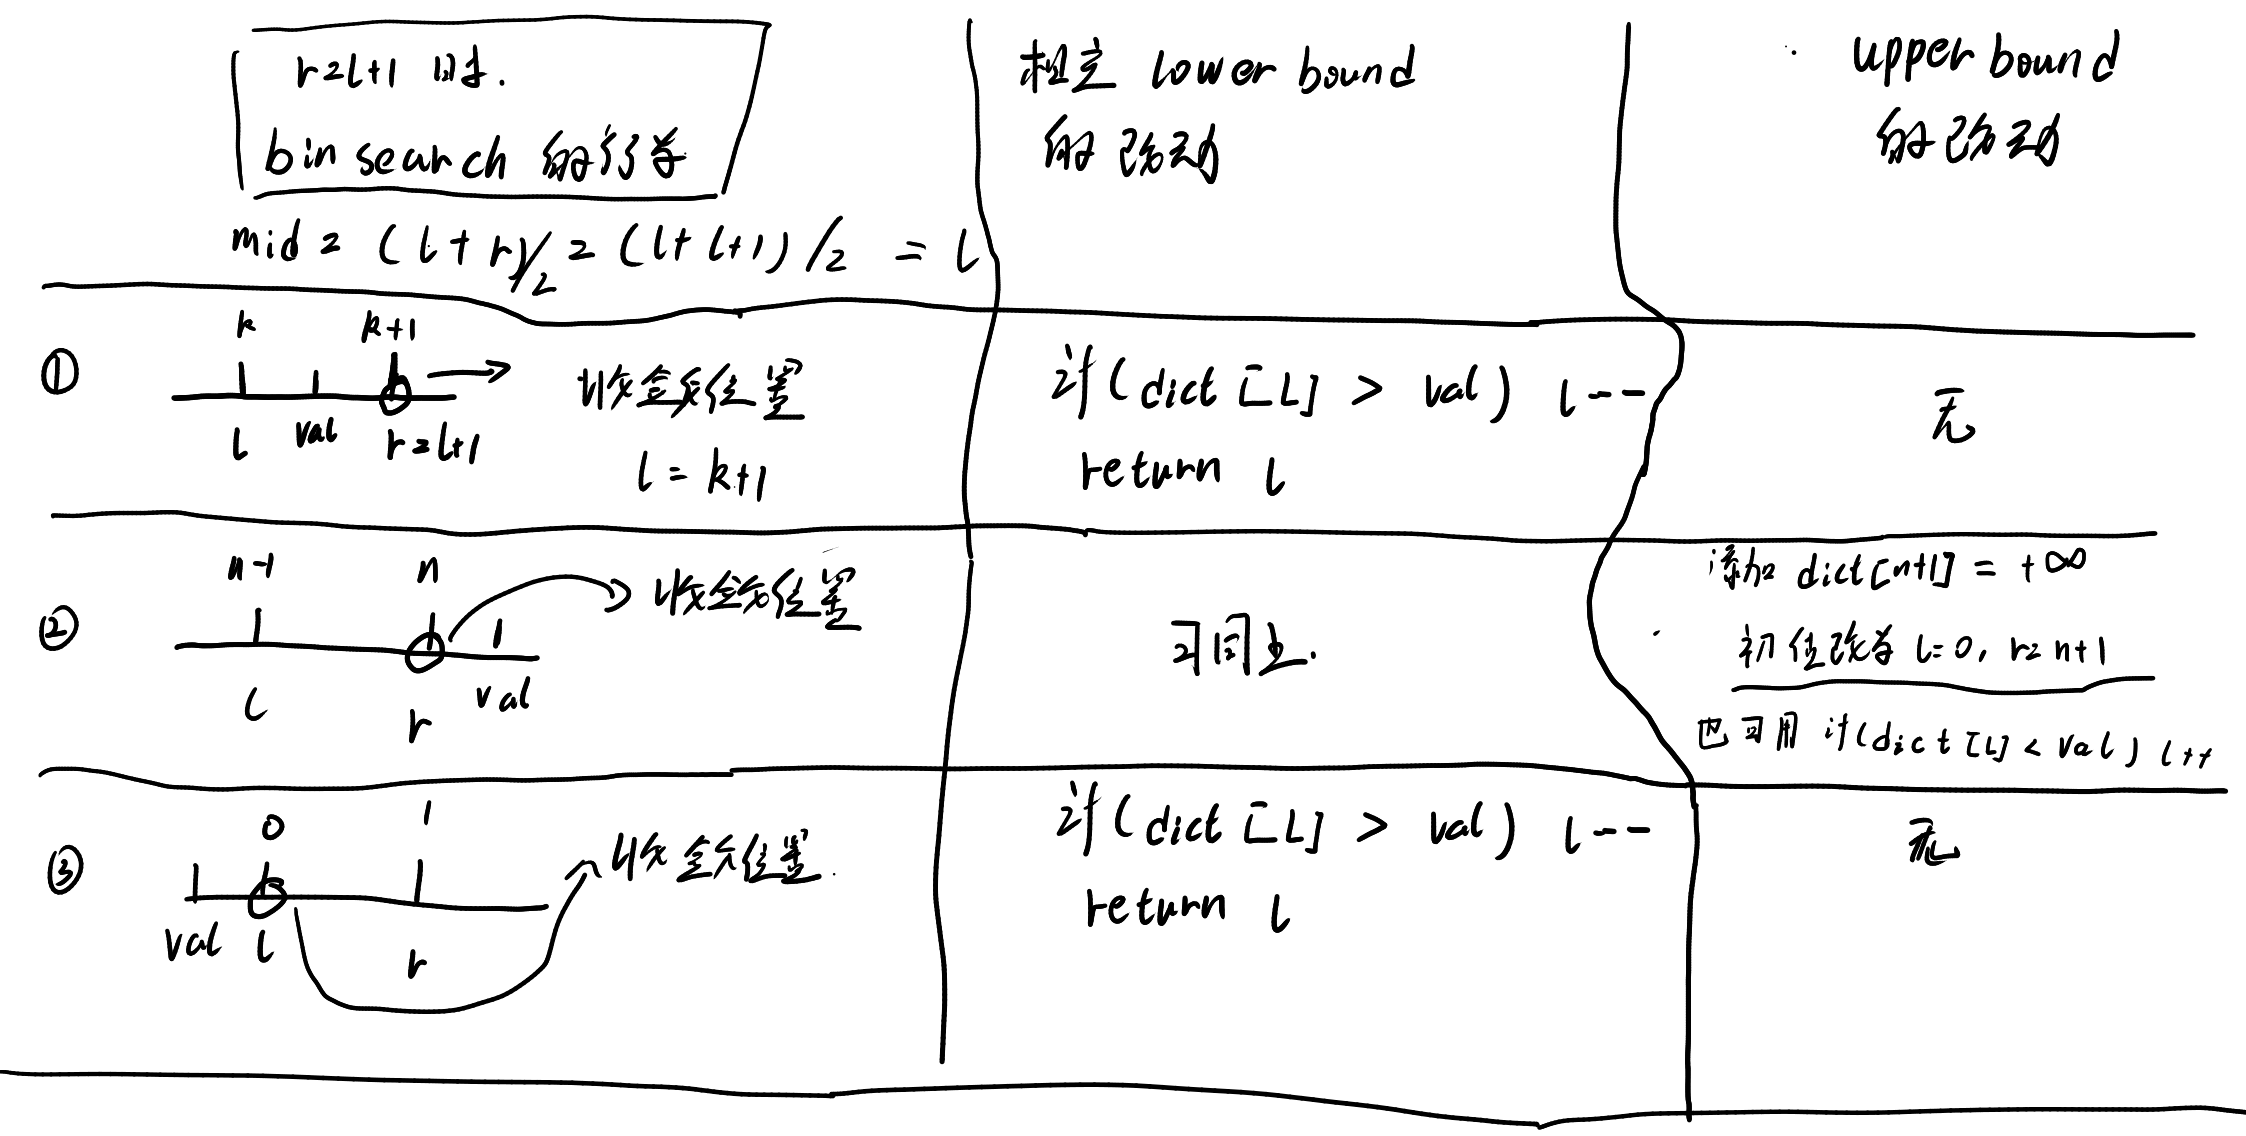 r=l+1 时.
bin search 的行为
mid = (l+r)/2 = (l+l+1)/2 = l
相应 lower bound
的改动
upper bound
的改动
①
k
k+1
l
val
r=l+1
收敛位置
l = k+1
if(dict[L] > val) l--
return l
无
②
n-1
n
l
r
val
收敛位置
可同上.
添加 dict[n+1] = +∞
初值改为 l=0, r=n+1
也可用 if(dict[L] < val) l++
③
0
1
val
l
r
收敛位置
if(dict[L] > val) l--
return l
无